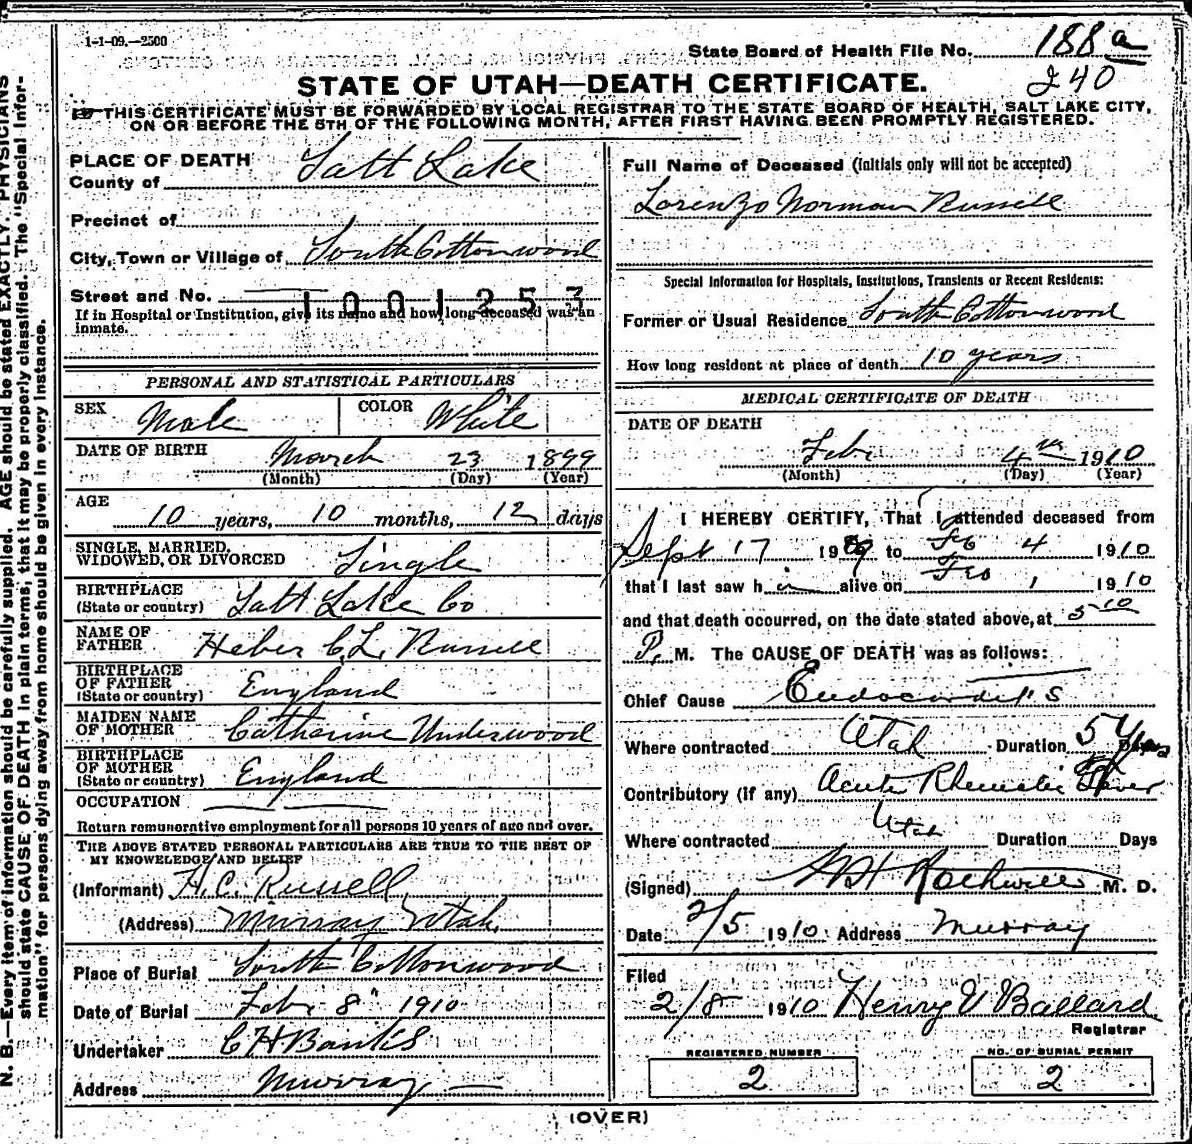 1-1-09.—2500
State Board of Health File No. 188 a
240
STATE OF UTAH—DEATH CERTIFICATE.
THIS CERTIFICATE MUST BE FORWARDED BY LOCAL REGISTRAR TO THE STATE BOARD OF HEALTH, SALT LAKE CITY,
ON OR BEFORE THE 5TH OF THE FOLLOWING MONTH, AFTER FIRST HAVING BEEN PROMPTLY REGISTERED.
N. B.—Every item of information should be carefully supplied. AGE should be stated EXACTLY. PHYSICIANS
should state CAUSE OF DEATH in plain terms, that it may be properly classified. The "Special Infor-
mation" for persons dying away from home should be given in every instance.
PLACE OF DEATH
County of Salt Lake
Precinct of
City, Town or Village of South Cottonwood
Street and No.
1001253
If in Hospital or Institution, give its name and how long deceased was an
inmate.
PERSONAL AND STATISTICAL PARTICULARS
SEX Male COLOR White
DATE OF BIRTH March 23 1899
(Month) (Day) (Year)
AGE
10 years, 10 months, 12 days
SINGLE, MARRIED,
WIDOWED, OR DIVORCED Single
BIRTHPLACE
(State or country) Salt Lake Co
NAME OF
FATHER Heber C. L. Russell
BIRTHPLACE
OF FATHER
(State or country) England
MAIDEN NAME
OF MOTHER Catharine Underwood
BIRTHPLACE
OF MOTHER
(State or country) England
OCCUPATION
Return remunerative employment for all persons 10 years of age and over.
THE ABOVE STATED PERSONAL PARTICULARS ARE TRUE TO THE BEST OF
MY KNOWLEDGE AND BELIEF
(Informant) H. C. Russell
(Address) Murray Utah.
Place of Burial South Cottonwood
Date of Burial Feb. 8" 1910
Undertaker C H Banks
Address Murray
Full Name of Deceased (Initials only will not be accepted)
Lorenzo Norman Russell
Special Information for Hospitals, Institutions, Transients or Recent Residents:
Former or Usual Residence South Cottonwood
How long resident at place of death 10 years
MEDICAL CERTIFICATE OF DEATH
DATE OF DEATH
Feb. 4th 1910
(Month) (Day) (Year)
I HEREBY CERTIFY, That I attended deceased from
Sept 17 1909 to Feb 4 1910
that I last saw him alive on Feb 1 1910
and that death occurred, on the date stated above, at 5 10
P. M. The CAUSE OF DEATH was as follows:
Chief Cause Endocarditis
Where contracted Utah Duration 5 Years
Contributory (if any) Acute Rheumatic Fever
Where contracted Utah Duration Days
(Signed) Rockwell M. D.
Date 2/5 1910 Address Murray
Filed
2/8 1910 Henry V Ballard
Registrar
REGISTERED NUMBER
2
NO. OF BURIAL PERMIT
2
(OVER)